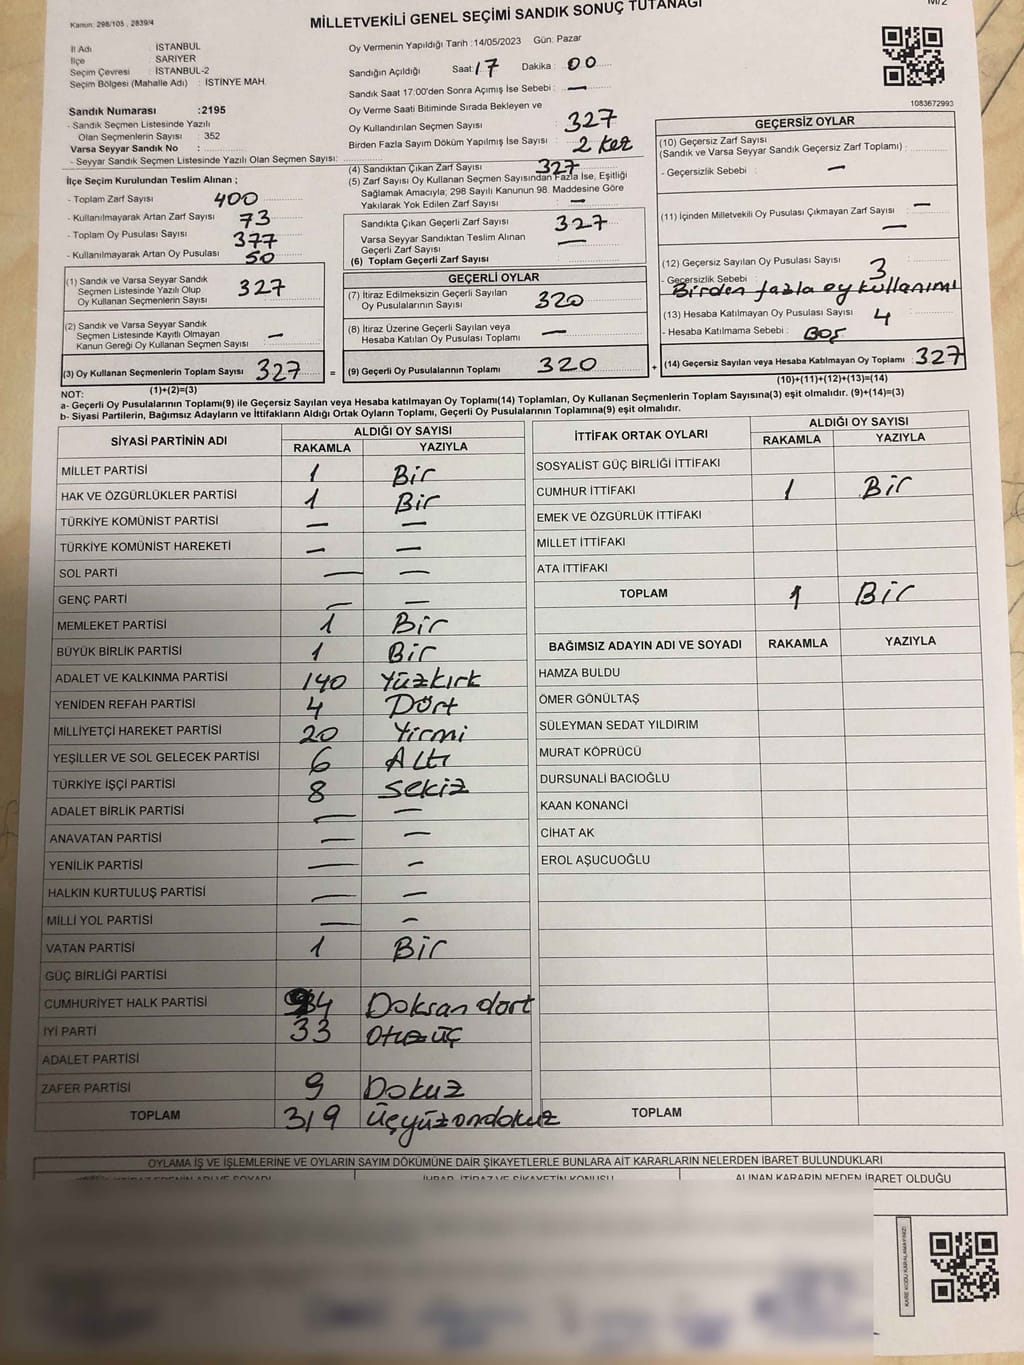 Kanun: 298/105 , 2839/4
MİLLETVEKİLİ GENEL SEÇİMİ SANDIK SONUÇ TUTANAĞI
M/2
İl Adı : İSTANBUL
İlçe : SARIYER
Seçim Çevresi : İSTANBUL-2
Seçim Bölgesi (Mahalle Adı) : İSTİNYE MAH.
Sandık Numarası :2195
- Sandık Seçmen Listesinde Yazılı
Olan Seçmenlerin Sayısı : 352
Varsa Seyyar Sandık No :
- Seyyar Sandık Seçmen Listesinde Yazılı Olan Seçmen Sayısı:
Oy Vermenin Yapıldığı Tarih :14/05/2023 Gün: Pazar
Sandığın Açıldığı Saat: 17 Dakika : 00
Sandık Saat 17:00'den Sonra Açımış İse Sebebi : —
Oy Verme Saati Bitiminde Sırada Bekleyen ve
Oy Kullandırılan Seçmen Sayısı : 327
Birden Fazla Sayım Döküm Yapılmış İse Sayısı : 2 kez
1083672993
İlçe Seçim Kurulundan Teslim Alınan ;
- Toplam Zarf Sayısı : 400
- Kullanılmayarak Artan Zarf Sayısı : 73
- Toplam Oy Pusulası Sayısı : 377
- Kullanılmayarak Artan Oy Pusulası : 50
(1) Sandık ve Varsa Seyyar Sandık
Seçmen Listesinde Yazılı Olup
Oy Kullanan Seçmenlerin Sayısı : 327
(2) Sandık ve Varsa Seyyar Sandık
Seçmen Listesinde Kayıtlı Olmayan
Kanun Gereği Oy Kullanan Seçmen Sayısı : —
(3) Oy Kullanan Seçmenlerin Toplam Sayısı : 327
(1)+(2)=(3)
(4) Sandıktan Çıkan Zarf Sayısı : 327
(5) Zarf Sayısı Oy Kullanan Seçmen Sayısından Fazla İse, Eşitliği
Sağlamak Amacıyla; 298 Sayılı Kanunun 98. Maddesine Göre
Yakılarak Yok Edilen Zarf Sayısı : —
Sandıkta Çıkan Geçerli Zarf Sayısı : 327
Varsa Seyyar Sandıktan Teslim Alınan
Geçerli Zarf Sayısı : —
(6) Toplam Geçerli Zarf Sayısı :
GEÇERLİ OYLAR
(7) İtiraz Edilmeksizin Geçerli Sayılan
Oy Pusulalarının Sayısı : 320
(8) İtiraz Üzerine Geçerli Sayılan veya
Hesaba Katılan Oy Pusulası Toplamı : —
= (9) Geçerli Oy Pusulalarının Toplamı : 320
GEÇERSİZ OYLAR
(10) Geçersiz Zarf Sayısı
(Sandık ve Varsa Seyyar Sandık Geçersiz Zarf Toplamı) :
- Geçersizlik Sebebi : —
(11) İçinden Milletvekili Oy Pusulası Çıkmayan Zarf Sayısı : —
—
(12) Geçersiz Sayılan Oy Pusulası Sayısı : 3
- Geçersizlik Sebebi : Birden fazla oy kullanımı
(13) Hesaba Katılmayan Oy Pusulası Sayısı : 4
- Hesaba Katılmama Sebebi : Boş
+ (14) Geçersiz Sayılan veya Hesaba Katılmayan Oy Toplamı : 327
(10)+(11)+(12)+(13)=(14)
NOT:
a- Geçerli Oy Pusulalarının Toplamı(9) ile Geçersiz Sayılan veya Hesaba katılmayan Oy Toplamı(14) Toplamları, Oy Kullanan Seçmenlerin Toplam Sayısına(3) eşit olmalıdır. (9)+(14)=(3)
b- Siyasi Partilerin, Bağımsız Adayların ve İttifakların Aldığı Ortak Oyların Toplamı, Geçerli Oy Pusulalarının Toplamına(9) eşit olmalıdır.
SİYASİ PARTİNİN ADI ALDIĞI OY SAYISI
RAKAMLA YAZIYLA
MİLLET PARTİSİ 1 Bir
HAK VE ÖZGÜRLÜKLER PARTİSİ 1 Bir
TÜRKİYE KOMÜNİST PARTİSİ — —
TÜRKİYE KOMÜNİST HAREKETİ — —
SOL PARTİ — —
GENÇ PARTİ — —
MEMLEKET PARTİSİ 1 Bir
BÜYÜK BİRLİK PARTİSİ 1 Bir
ADALET VE KALKINMA PARTİSİ 140 Yüzkırk
YENİDEN REFAH PARTİSİ 4 Dört
MİLLİYETÇİ HAREKET PARTİSİ 20 Yirmi
YEŞİLLER VE SOL GELECEK PARTİSİ 6 Altı
TÜRKİYE İŞÇİ PARTİSİ 8 Sekiz
ADALET BİRLİK PARTİSİ — —
ANAVATAN PARTİSİ — —
YENİLİK PARTİSİ — —
HALKIN KURTULUŞ PARTİSİ — —
MİLLİ YOL PARTİSİ — —
VATAN PARTİSİ 1 Bir
GÜÇ BİRLİĞİ PARTİSİ
CUMHURİYET HALK PARTİSİ 94 Doksan dört
İYİ PARTİ 33 Otuz üç
ADALET PARTİSİ
ZAFER PARTİSİ 9 Dokuz
TOPLAM 319 Üçyüzondokuz
İTTİFAK ORTAK OYLARI ALDIĞI OY SAYISI
RAKAMLA YAZIYLA
SOSYALİST GÜÇ BİRLİĞİ İTTİFAKI
CUMHUR İTTİFAKI 1 Bir
EMEK VE ÖZGÜRLÜK İTTİFAKI
MİLLET İTTİFAKI
ATA İTTİFAKI
TOPLAM 1 Bir
BAĞIMSIZ ADAYIN ADI VE SOYADI RAKAMLA YAZIYLA
HAMZA BULDU
ÖMER GÖNÜLTAŞ
SÜLEYMAN SEDAT YILDIRIM
MURAT KÖPRÜCÜ
DURSUNALİ BACIOĞLU
KAAN KONANCİ
CİHAT AK
EROL AŞUCUOĞLU
TOPLAM
OYLAMA İŞ VE İŞLEMLERİNE VE OYLARIN SAYIM DÖKÜMÜNE DAİR ŞİKAYETLERLE BUNLARA AİT KARARLARIN NELERDEN İBARET BULUNDUKLARI
İHBAR, İTİRAZ VE ŞİKAYETİN KONUSU ALINAN KARARIN NEDEN İBARET OLDUĞU
KARE KODU KARALAMAYINIZ!